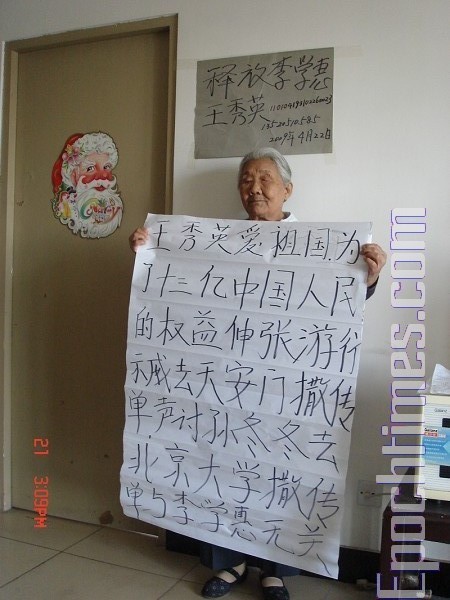 释放李学惠
王秀英
2009年4月22日
王秀英爱祖国,为
了十三亿中国人民
的权益伸张游行
示威去天安门撒传
单,声讨孙冬冬去
北京大学撒传
单与李学惠无关
21 3:09PM
Epochtimes.com